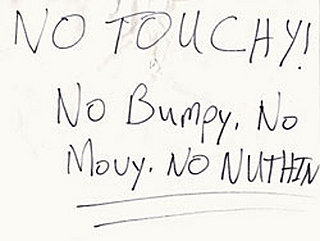 NO TOUCHY!
No Bumpy, No
Movy. NO NUTHIN